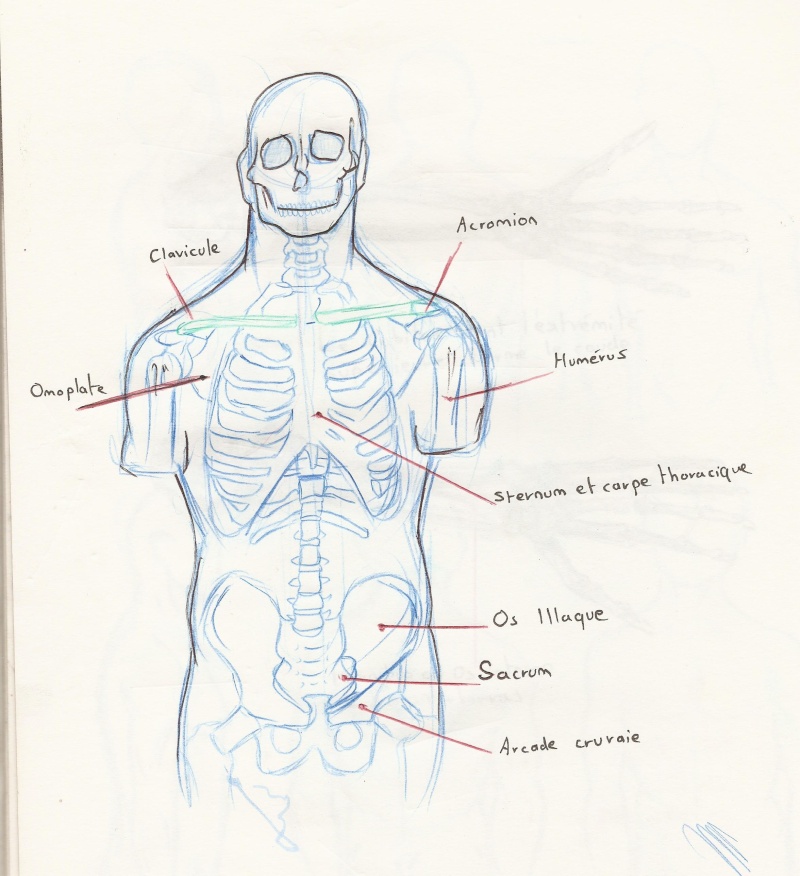 Acromion
Clavicule
Humérus
Omoplate
Sternum et carpe thoracique
Os Illaque
Sacrum
Arcade cruraie